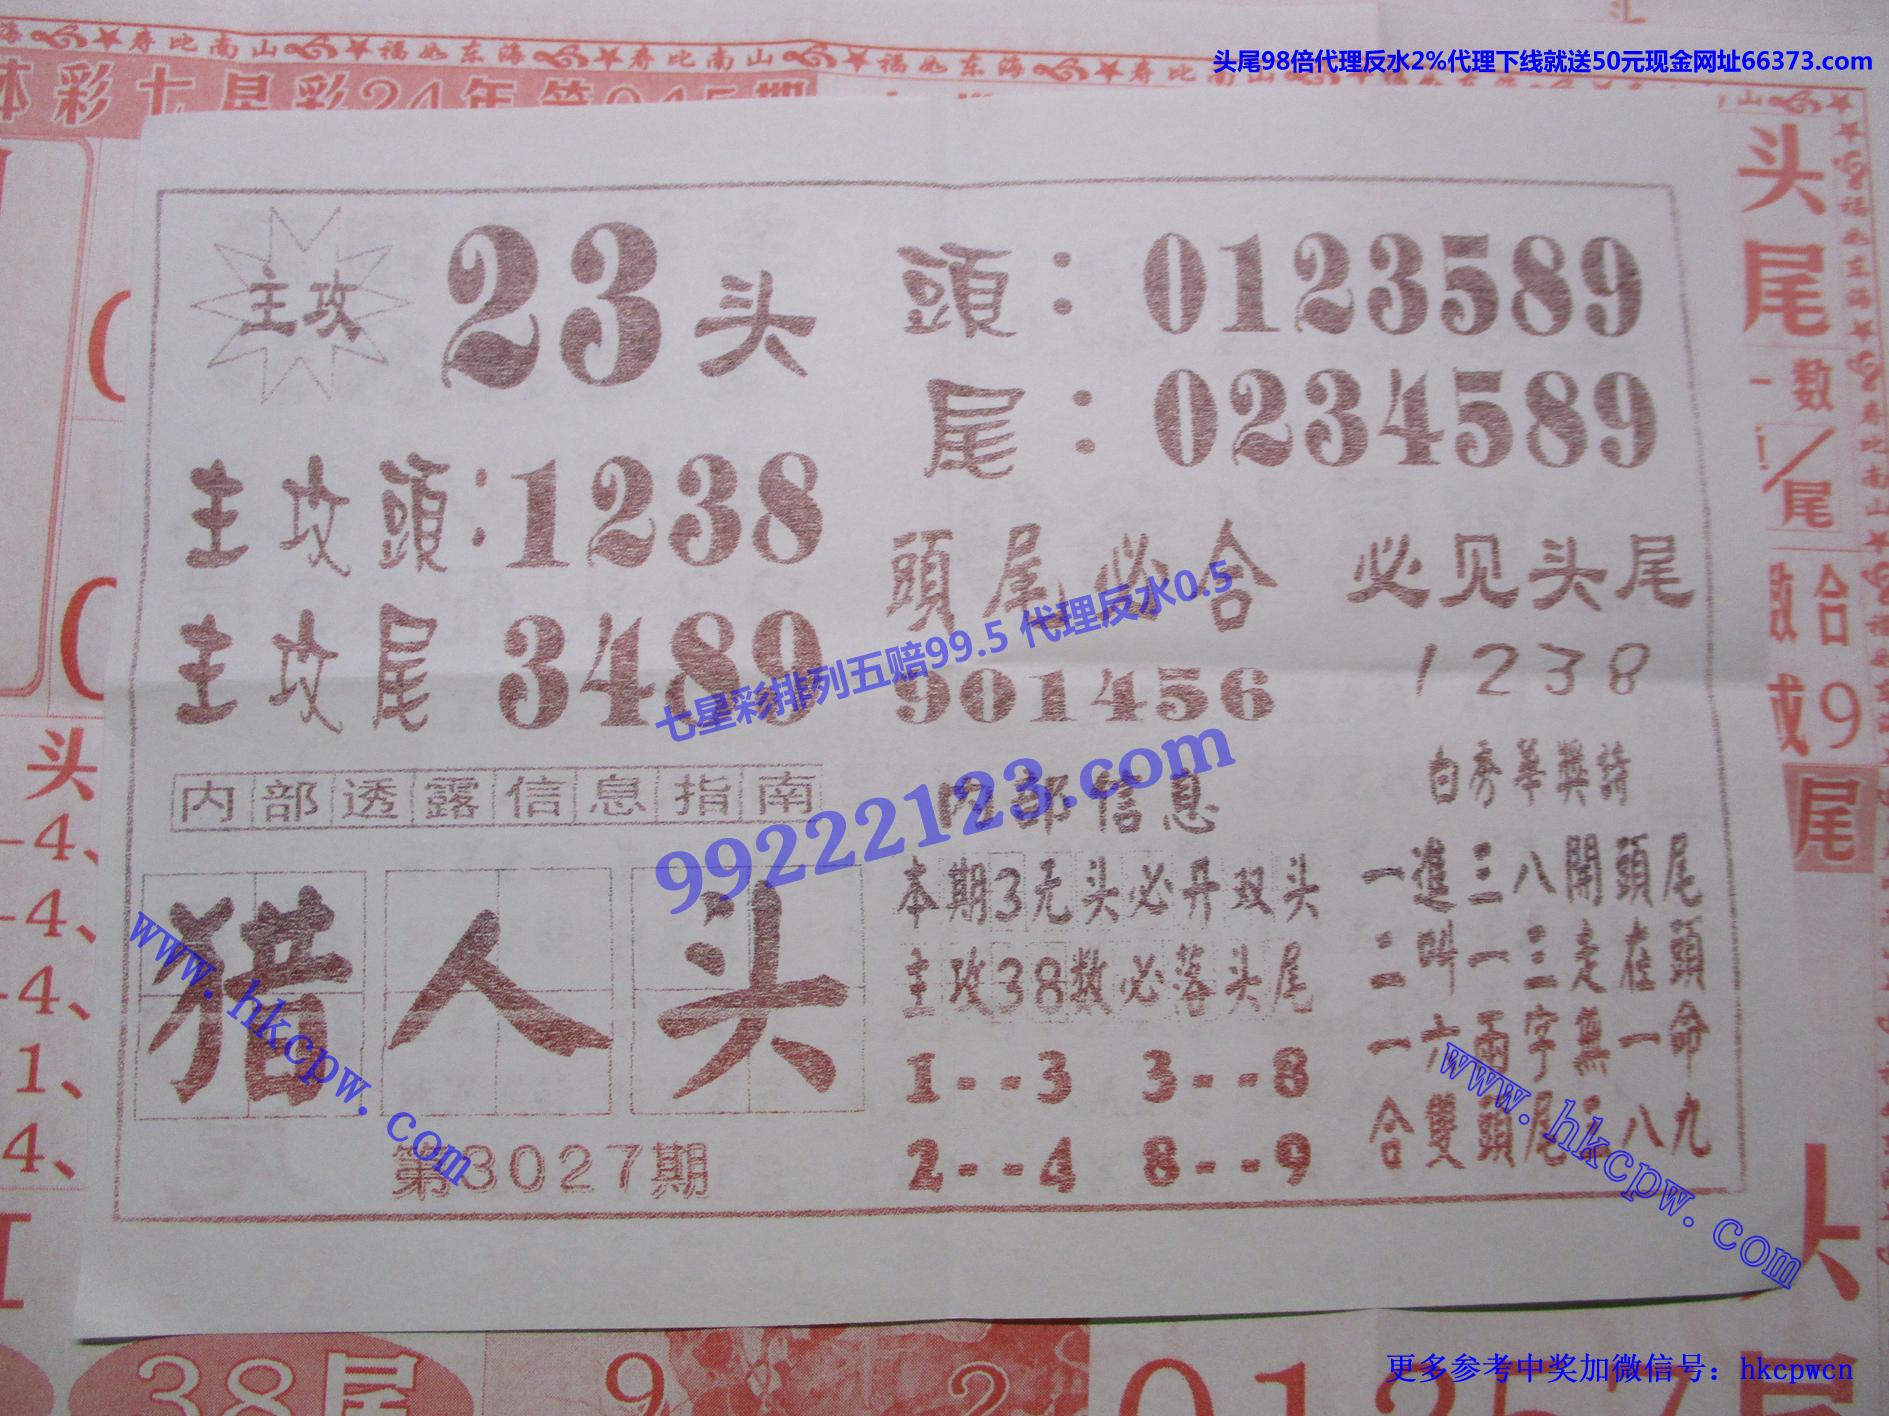 头尾98倍代理反水2%代理下线就送50元现金网址66373.com
寿比南山 福如东海 寿比南山 福如东海
体彩七星彩24年第045期
主攻 23头
頭：0123589
尾：0234589
主攻頭：1238
主攻尾 3489
頭尾必合
901456
必见头尾
1238
七星彩排列五赔99.5 代理反水0.5
99222123.com
内部透露信息指南
猎人头
第3027期
内部信息
本期3元头必开双头
主攻38数必落头尾
1--3 3--8
2--4 8--9
一進三八開頭尾
二叫一三走在頭
一六兩字無一命
合雙頭尾 八九
www.hkcpw.com
www.hkcpw.com
头尾
数
尾
合
9
尾
头
4、
4、
4、
1、
4、
38尾
9
2
更多参考中奖加微信号：hkcpwcn